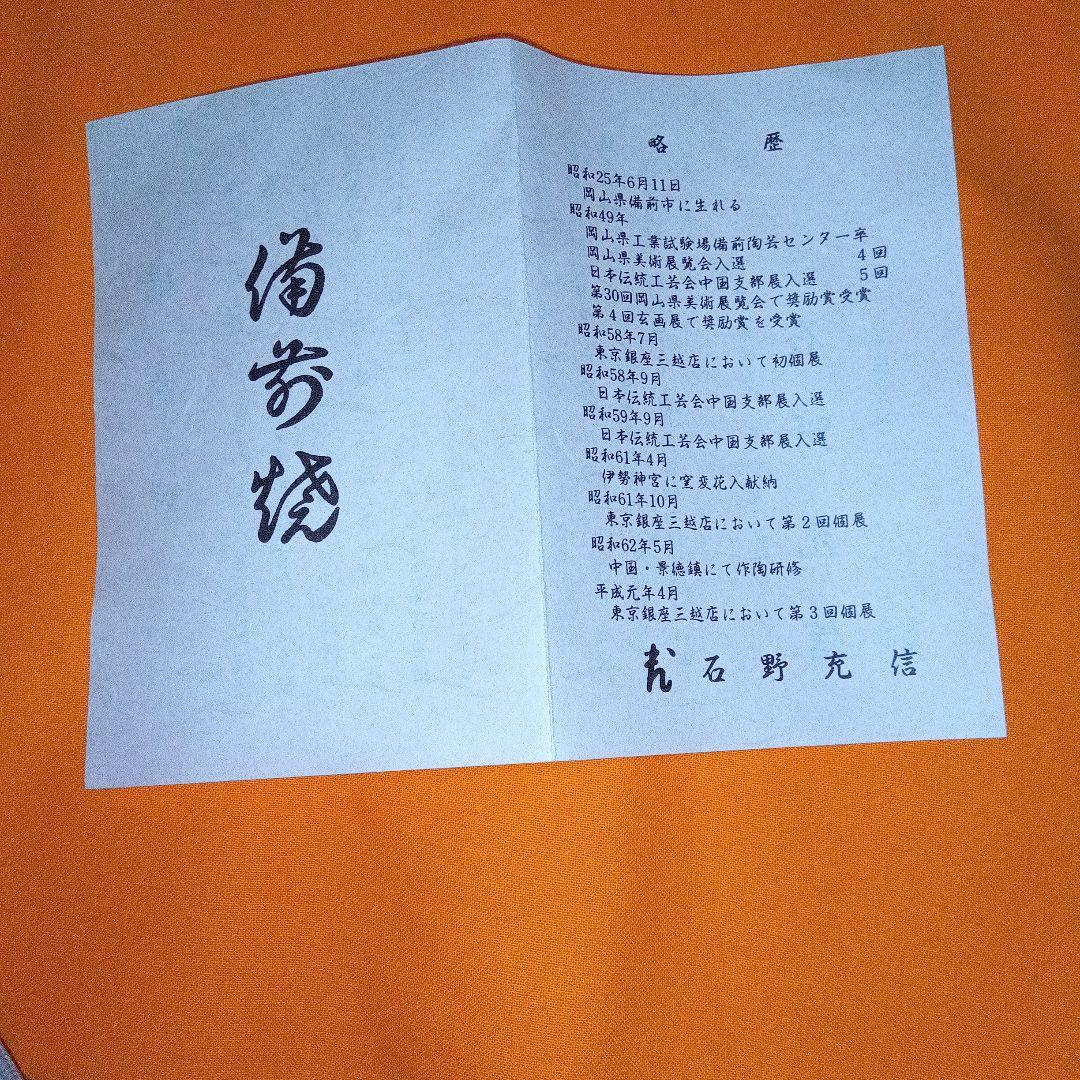 備前焼
略歴
昭和25年6月11日
岡山県備前市に生れる
昭和49年
岡山県工業試験場備前陶芸センター卒
岡山県美術展覧会入選 4回
日本伝統工芸会中国支部展入選 5回
第30回岡山県美術展覧会で奨励賞受賞
第4回玄画展で奨励賞を受賞
昭和58年7月
東京銀座三越店において初個展
昭和58年9月
日本伝統工芸会中国支部展入選
昭和59年9月
日本伝統工芸会中国支部展入選
昭和61年4月
伊勢神宮に窯変花入献納
昭和61年10月
東京銀座三越店において第2回個展
昭和62年5月
中国・景徳鎮にて作陶研修
平成元年4月
東京銀座三越店において第3回個展
石野充信